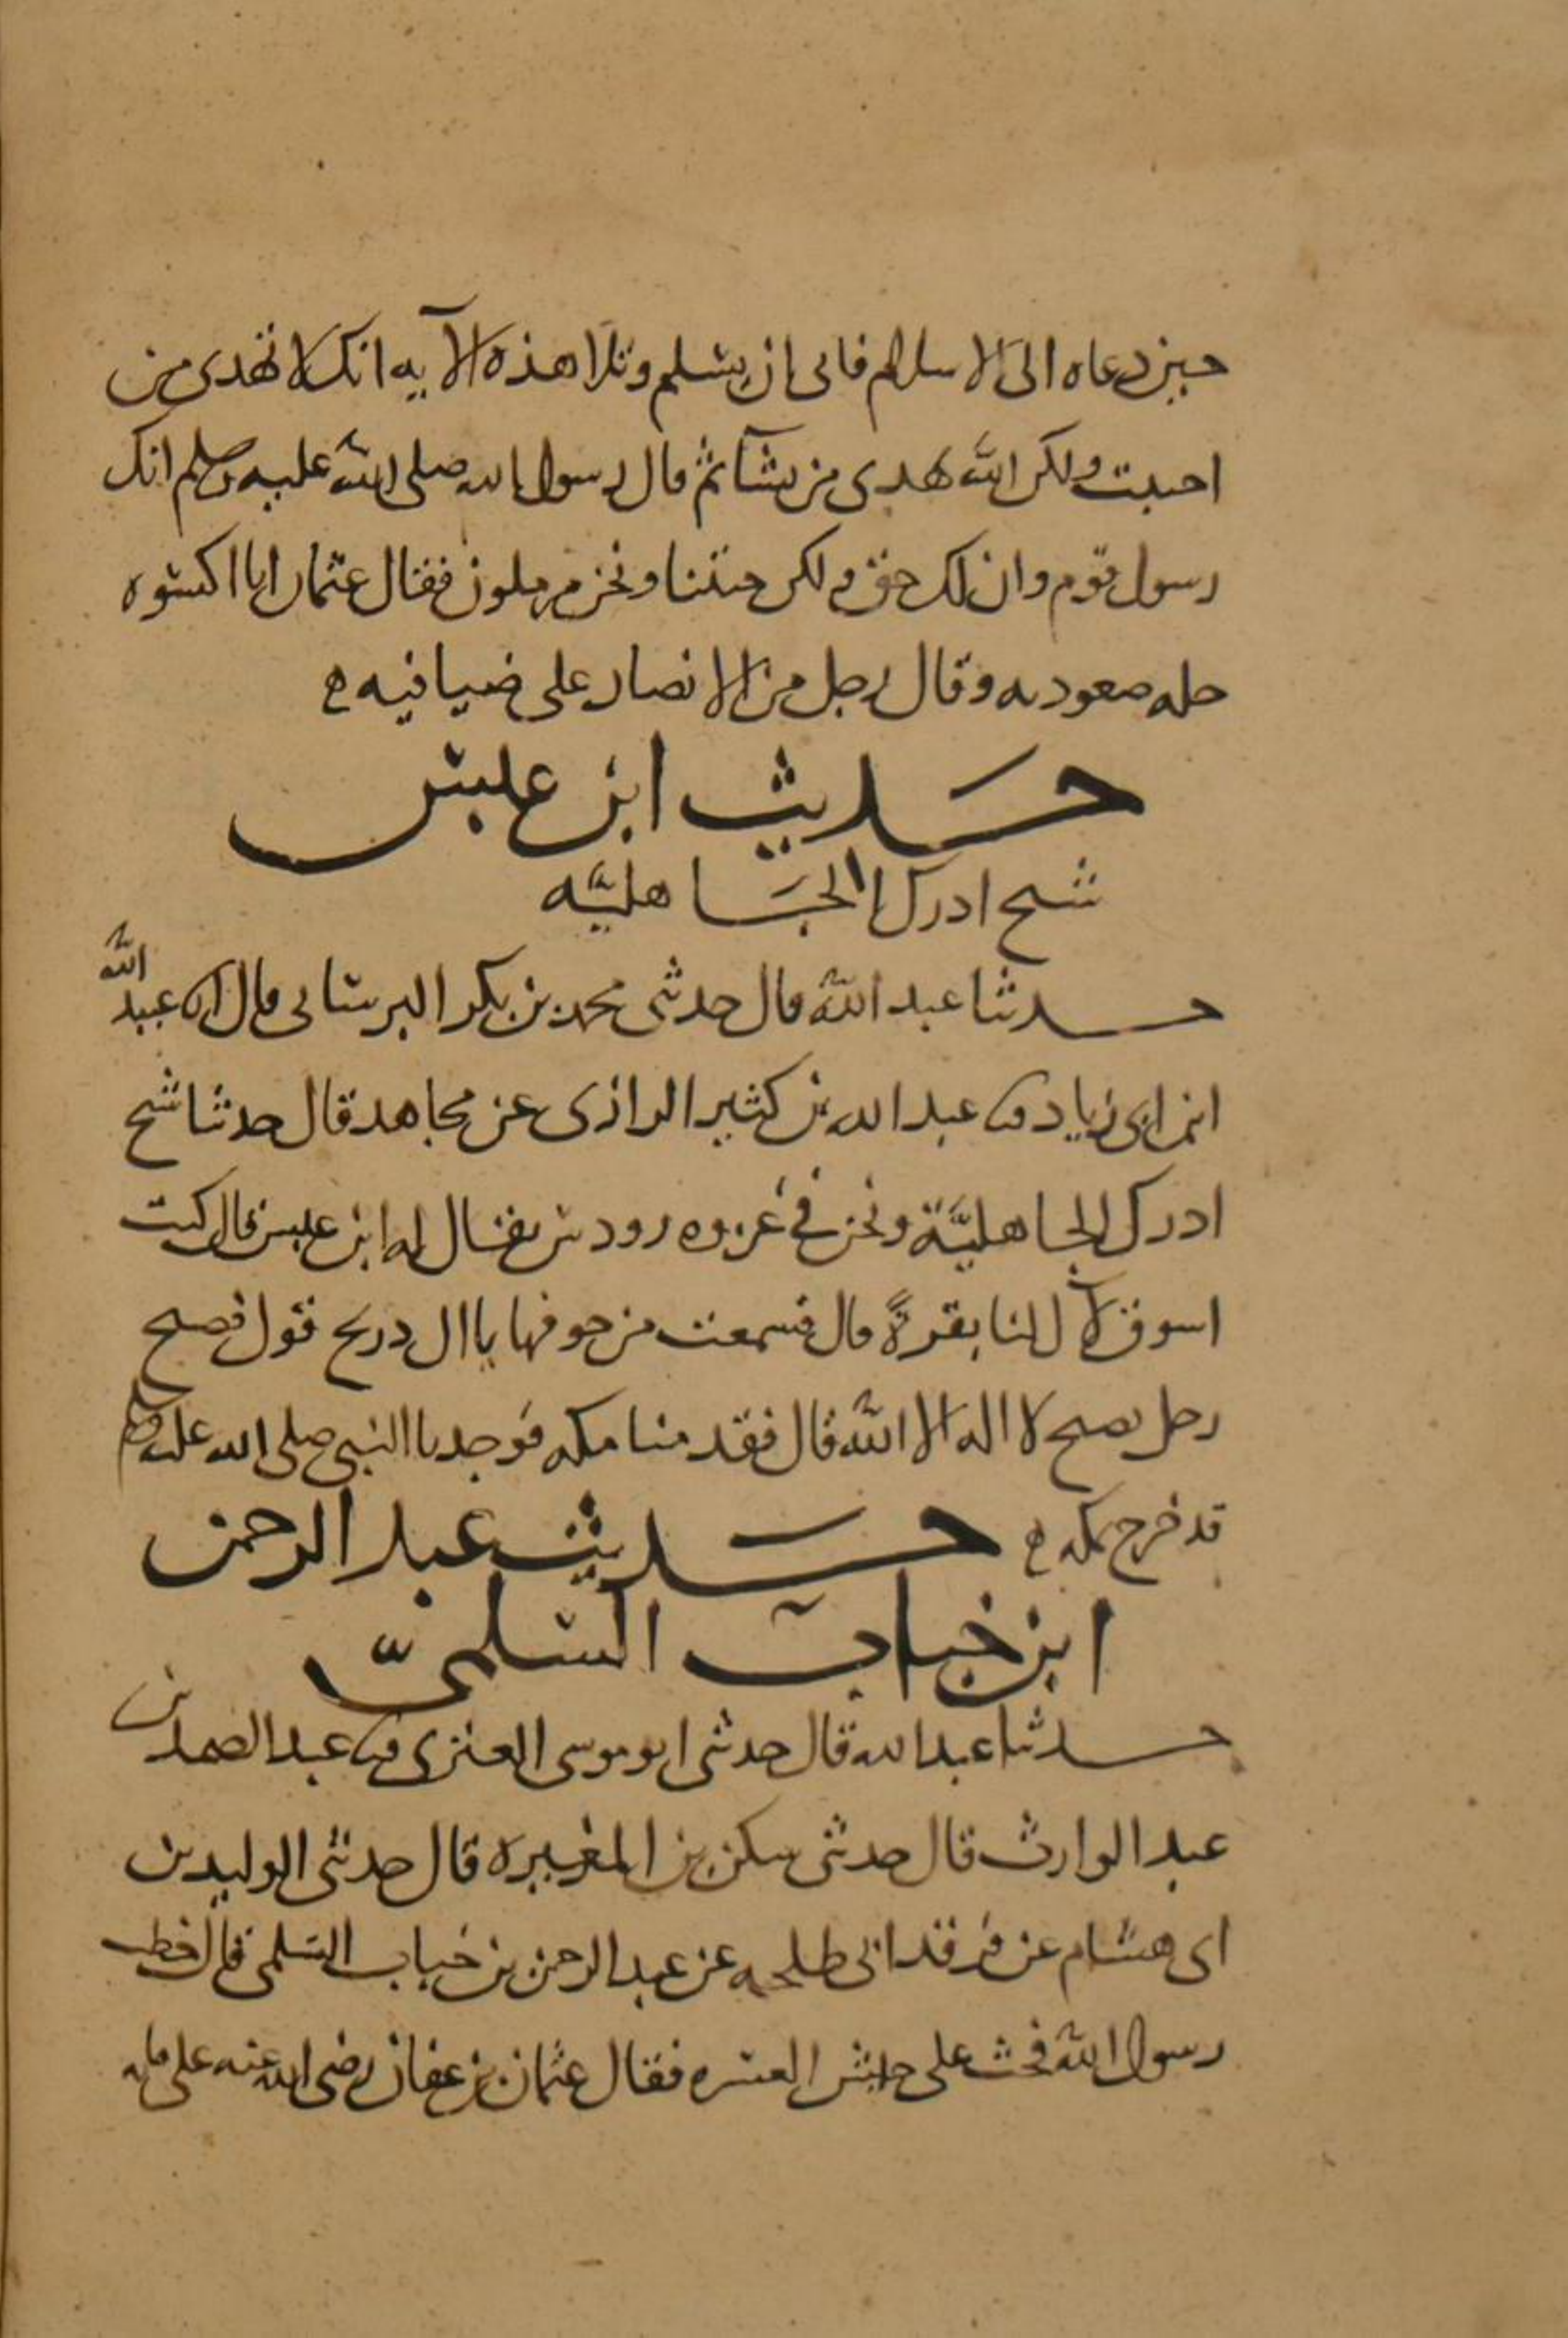 حين دعاه الى الاسلام فابى ان يسلم وتلا هذه الآيه انك لا تهدى من
احببت ولكن الله يهدى من يشآ ثم قال رسول الله صلى الله عليه وسلم انك
رسول قوم وان لك حق ولكن جئتنا ونحن مرملون فقال عثمان انا اكسوه
حله صفوريه وقال رجل من الانصار على ضيافته
حديث ابن عبس
شيخ ادرك الجاهليّه
حدثنا عبد الله قال حدثنى محمد بن بكر البرسانى قال انا عبيد الله
ابن ابى زياد ثنا عبد الله بن كثير الدارى عن مجاهد قال حدثنا شيخ
ادرك الجاهليّة ونحن فى غزوه رودس يقال له ابن عبس قال كنت
اسوق لآل لنا بقرةً قال فسمعت من جوفها يا ال ذريح قول فصيح
رجل يصيح لا اله الا الله قال فقدمنا مكه فوجدنا النبى صلى الله عليه وسلم
قد خرج بمكه
حديث عبد الرحمن
ابن خباب السلمىّ
حدثنا عبد الله قال حدثنى ابو موسى العنزى ثنا عبد الصمد بن
عبد الوارث قال حدثنى سكن بن المغيره قال حدثنى الوليد بن
ابى هشام عن فرقد ابى طلحه عن عبد الرحمن بن خباب السلمى قال خطب
رسول الله فحث على جيش العسره فقال عثمان بن عفان رضى الله عنه على مايه